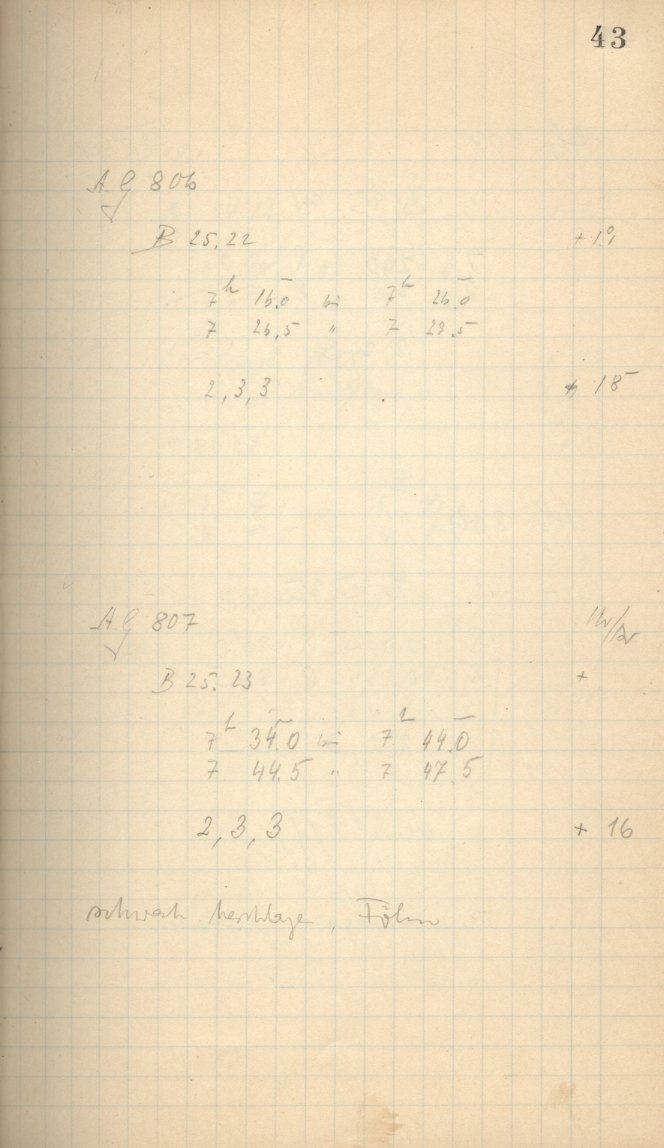 43
A.G 806
B 25.22 +1.9
7h 16.0 bis 7h 26.0
7 26.5 " 7 29.5
2, 3, 3 + 18
A.G 807
B 25.23 +
7h 34.0 bis 7h 44.0
7 44.5 " 7 47.5
2, 3, 3 + 16
schwach beschlagen, Föhn